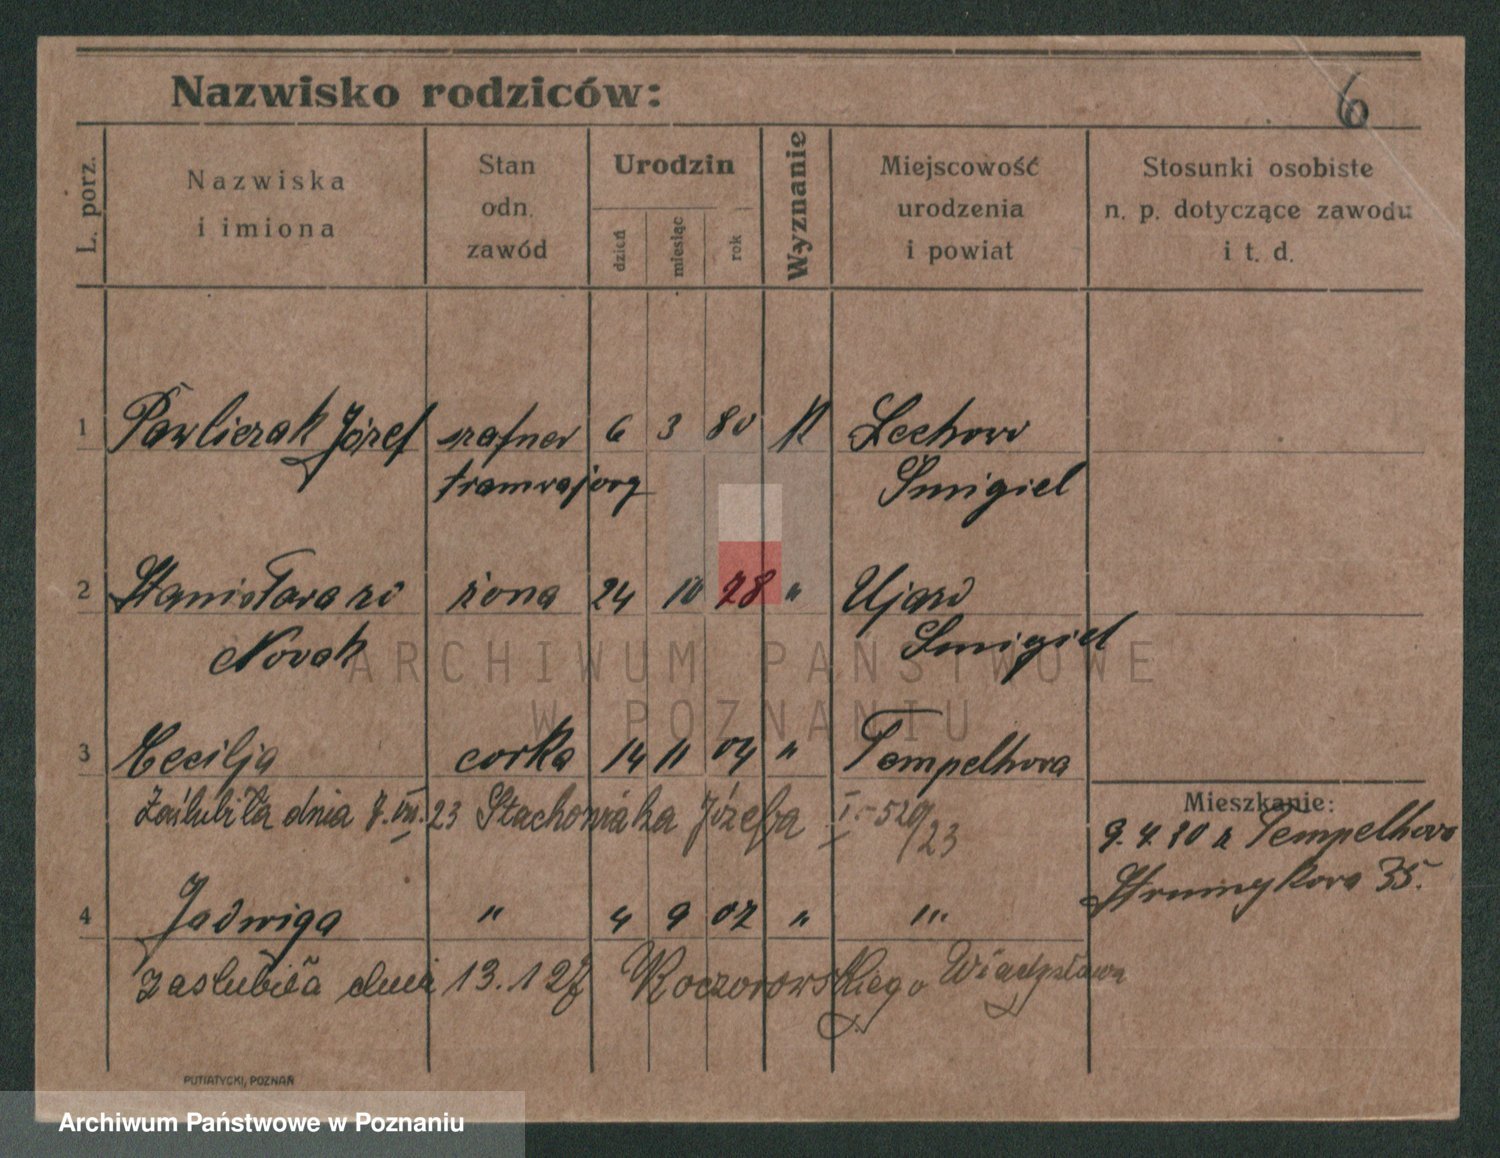 Nazwisko rodziców:
6
L. porz.
Nazwiska
i imiona
Stan
odn.
zawód
Urodzin
dzień
miesiąc
rok
Wyznanie
Miejscowość
urodzenia
i powiat
Stosunki osobiste
n. p. dotyczące zawodu
i t. d.
1 Pawliczak Józef szafner 6 3 80 K
tramwajowy Śmigiel
2 Stanisława żona 24 10 78 " Ujazd
Nowak Śmigiel
ARCHIWUM PAŃSTWOWE
W POZNANIU
3 Cecilja corka 14 11 04 " Tempelhova
Zaślubiła dnia 7. VII. 23 Stachowiaka Józefa I-529/23
Mieszkanie:
9. 4. 10 z Tempelhovo
35.
4 Jadwiga " 4 9 07 " "'
zaslubiła dnia 13. 1 27 Koczorowskiego Władysława
PUTIATYCKI, POZNAŃ
Archiwum Państwowe w Poznaniu